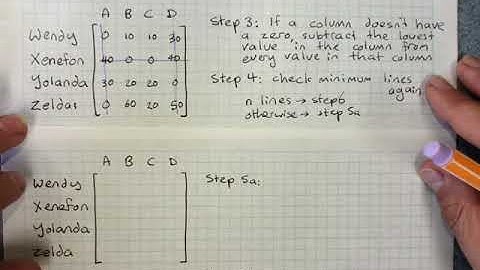 A B C D
Wendy 0 10 10 30
Xenefon 40 0 0 40
Yolanda 30 20 20 0
Zeldas 0 60 20 50
Step 3: If a column doesn't have
a zero, subtract the lowest
value in the column from
every value in that column
Step 4: check minimum lines
again.
n lines → step6
otherwise → step 5a
A B C D
Wendy
Xenefon
Yolanda
Zelda
Step 5a: